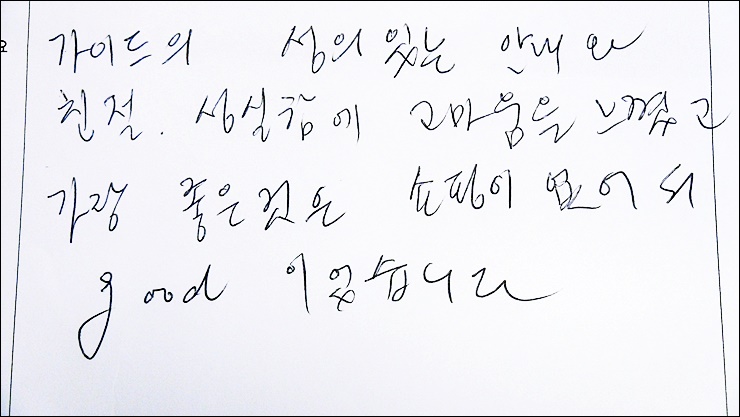 가이드의 성의있는 안내와
친절. 성실함에 고마움을 느꼈고
가장 좋은것은 쇼핑이 없어서
good 이었습니다